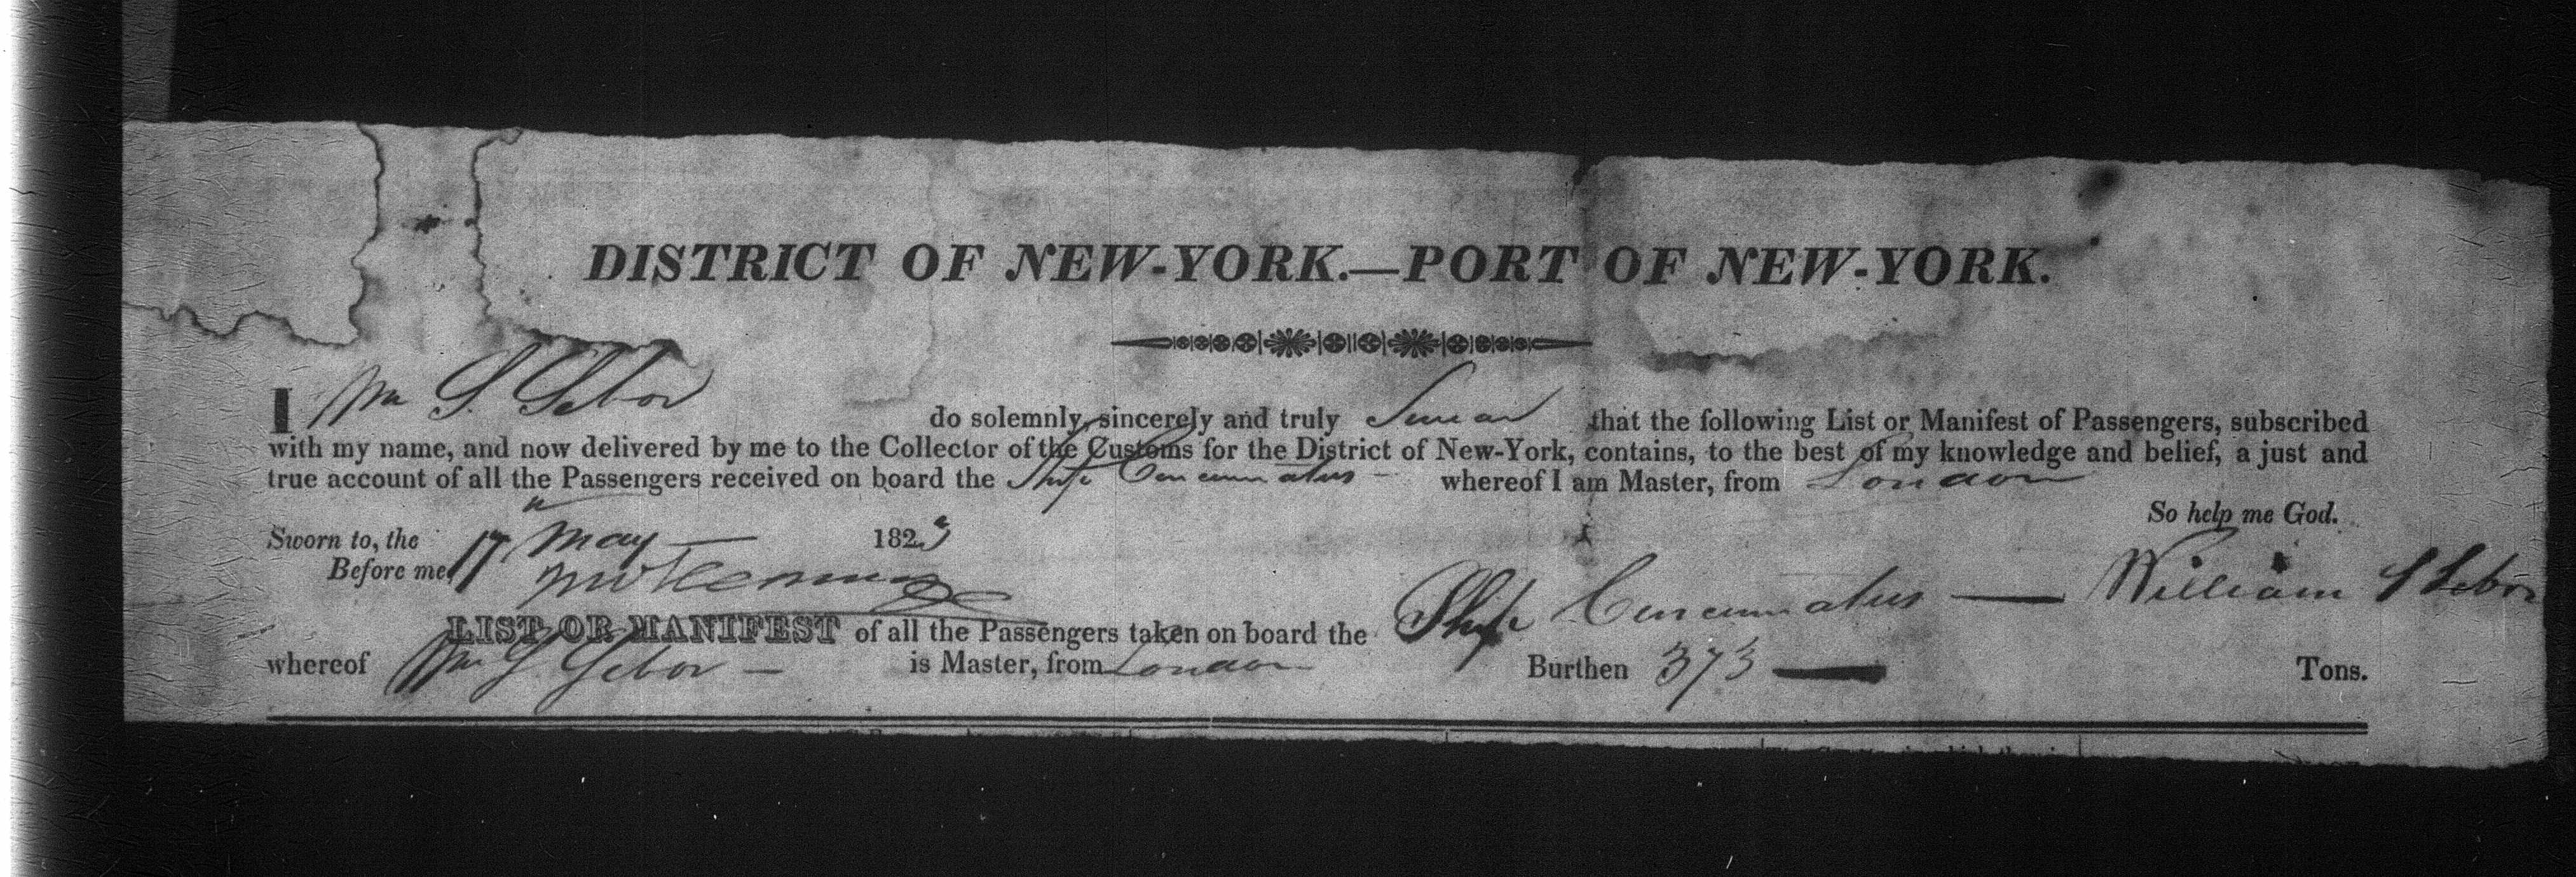 DISTRICT OF NEW-YORK.—PORT OF NEW-YORK.
I Wm S. Sebor do solemnly, sincerely and truly Swear that the following List or Manifest of Passengers, subscribed
with my name, and now delivered by me to the Collector of the Customs for the District of New-York, contains, to the best of my knowledge and belief, a just and
true account of all the Passengers received on board the Ship Cincinnatus whereof I am Master, from London
So help me God.
Sworn to, the 17th May 1823
Before me,
William S Sebor
LIST OR MANIFEST of all the Passengers taken on board the Ship Cincinnatus —
whereof Wm S Sebor — is Master, from London Burthen 373 — Tons.